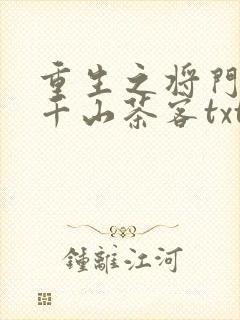 重生之将門
千山茶客txt
鍾離江河